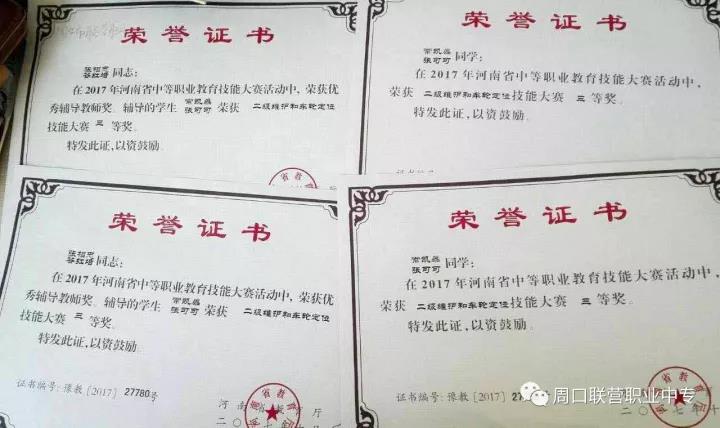 荣誉证书
同志：
在2017年河南省中等职业教育技能大赛活动中，荣获优
秀辅导教师奖。辅导的学生 常凯磊 张可可 荣获 二级维护和车轮定位
技能大赛 三 等奖。
特发此证，以资鼓励。
省教
荣誉证书
常凯磊
张可可 同学：
在2017年河南省中等职业教育技能大赛活动中，
荣获 二级维护和车轮定位 技能大赛 三 等奖。
特发此证，以资鼓励。
荣誉证书
同志：
在2017年河南省中等职业教育技能大赛活动中，荣获优
秀辅导教师奖。辅导的学生 常凯磊 张可可 荣获 二级维护和车轮定位
技能大赛 三 等奖。
特发此证，以资鼓励。
证书编号：豫教〔2017〕27780号
河南省教 厅
二〇
荣誉证书
常凯磊
张可可 同学：
在2017年河南省中等职业教育技能大赛活动中，
荣获 二级维护和车轮定位 技能大赛 三 等奖。
特发此证，以资鼓励。
证书编号：豫教〔2017〕
省教
二〇一七年十
周口联营职业中专